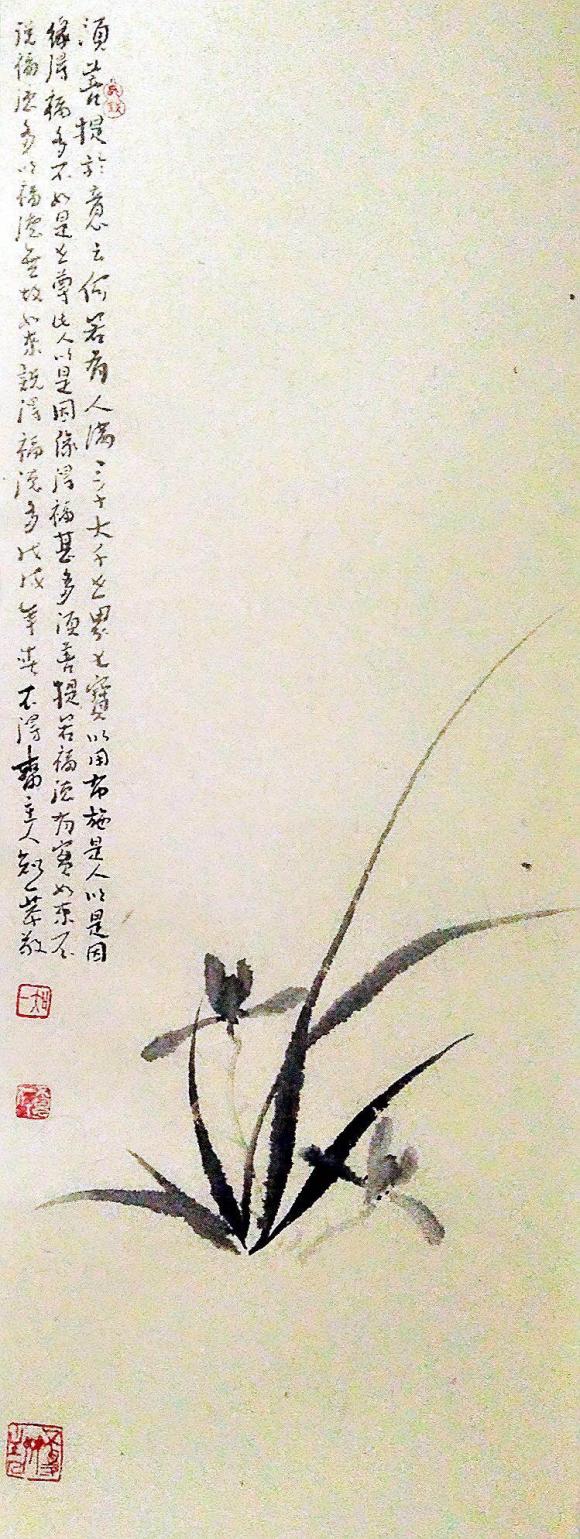 須菩提於意云何若有人滿三千大千世界七寶以用布施是人以是因
緣得福多不如是世尊此人以是因緣得福甚多須菩提若福德有實如來不
說福德多以福德無故如來說得福德多戊戌年春不得齋主人知一恭敬
知一